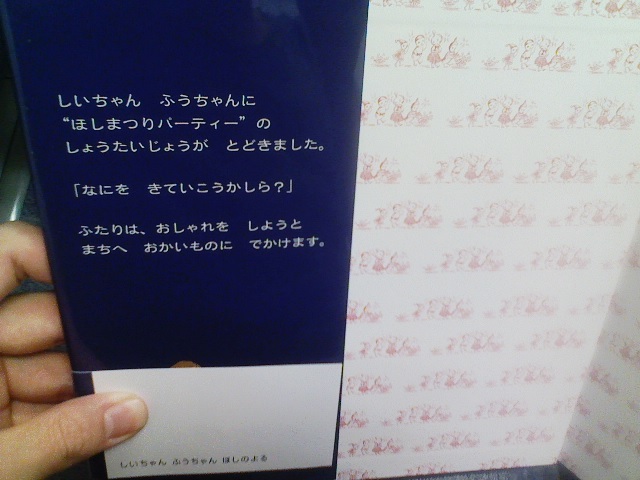 しいちゃん　ふうちゃんに
“ほしまつりパーティー”の
しょうたいじょうが　とどきました。
「なにを　きていこうかしら？」
ふたりは、おしゃれを　しようと
まちへ　おかいものに　でかけます。
しいちゃん ふうちゃん ほしのよる